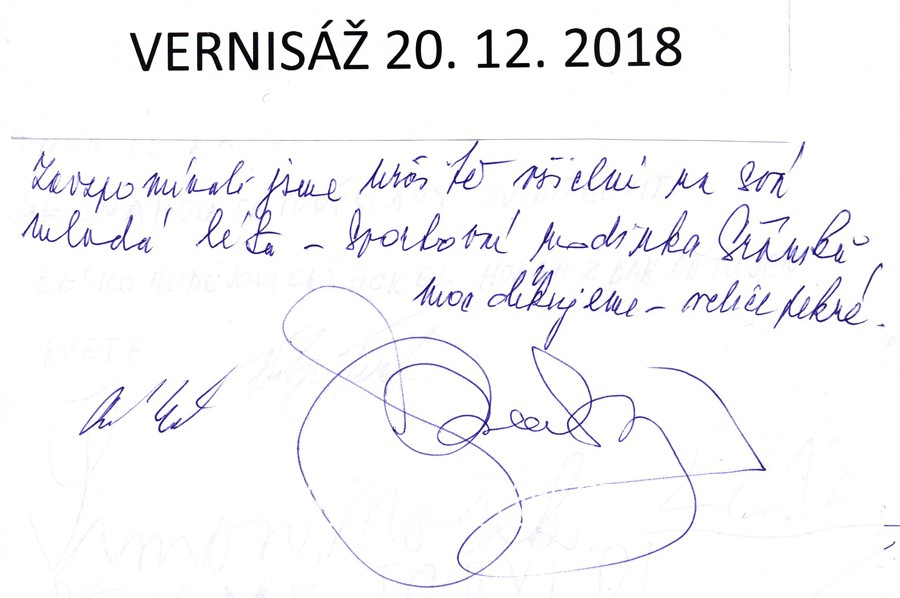 VERNISÁŽ 20. 12. 2018
Zavzpomínali jsme určitě všichni na svá
mladá léta – sportovní rodinka Šrámků
moc děkujeme – velice pěkné.